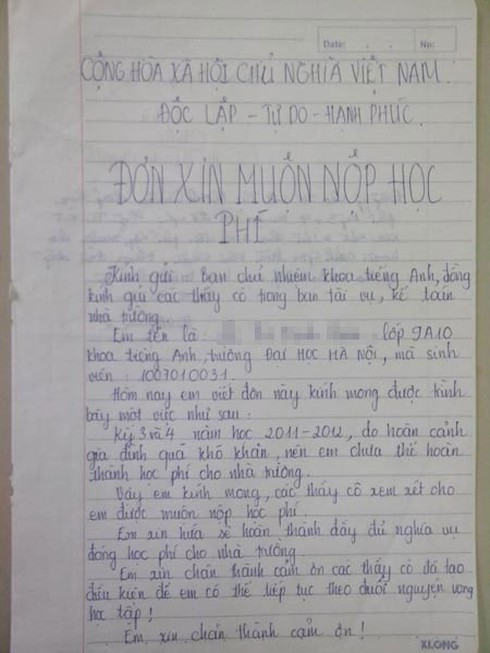 Date: . . No:
CỘNG HÒA XÃ HỘI CHỦ NGHĨA VIỆT NAM.
ĐỘC LẬP - TỰ DO - HẠNH PHÚC.
ĐƠN XIN MUỘN NỘP HỌC
PHÍ
Kính gửi ban chủ nhiệm khoa tiếng Anh, đồng
kính gửi các thầy cô trong ban tài vụ, kế toán
nhà trường.
Em tên là: lớp 9A10
khoa tiếng Anh, trường ĐẠI HỌC HÀ NỘI, mã sinh
viên: 1007010031.
Hôm nay em viết đơn này kính mong được trình
bày một việc như sau:
Kỳ 3 và 4 năm học 2011-2012, do hoàn cảnh
gia đình quá khó khăn, nên em chưa thể hoàn
thành học phí cho nhà trường.
Vậy em kính mong, các thầy cô xem xét cho
em được muộn nộp học phí.
Em xin hứa sẽ hoàn thành đầy đủ nghĩa vụ
đóng học phí cho nhà trường.
Em xin chân thành cảm ơn các thầy cô đã tạo
điều kiện để em có thể tiếp tục theo đuổi nguyện vọng
học tập!
Em xin chân thành cảm ơn!
KLONG